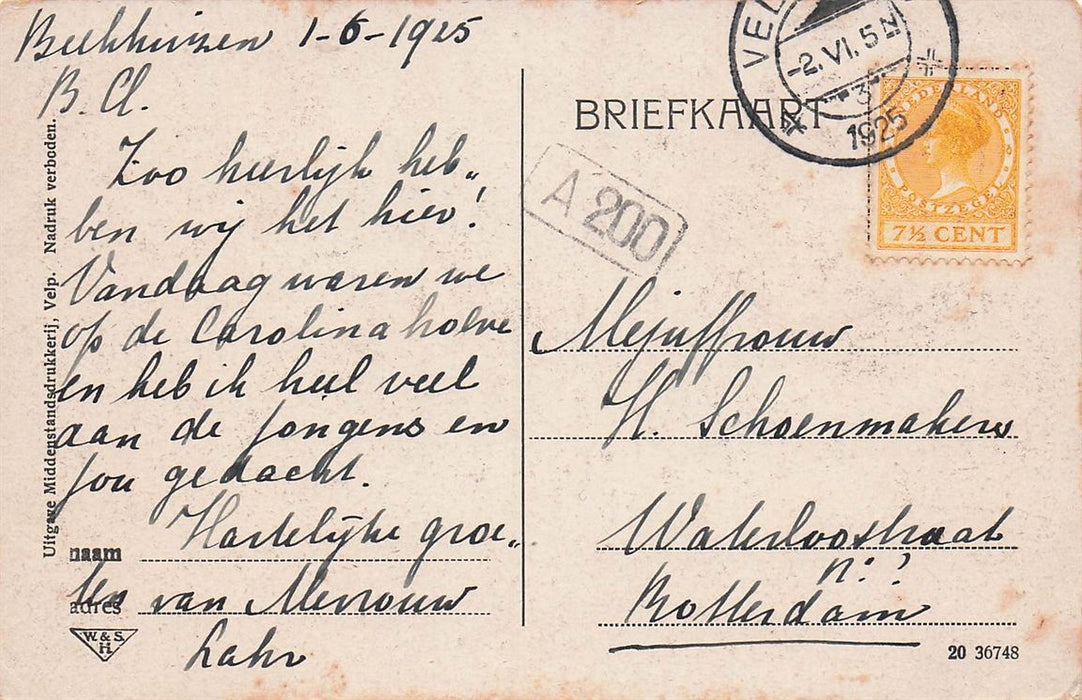 Beekhuizen 1-6-1925
B. Cl.
Zoo heerlijk heb„
ben wij het hier!
Vandaag waren we
op de Carolinahoeve
en heb ik heel veel
aan de jongens en
jou gedacht.
Hartelijke groe„
ten van Mevrouw
Lahr
Uitgave Middenstandsdrukkerij, Velp. Nadruk verboden.
naam
adres
W. & S.
H.
BRIEFKAART
A 200
VEL
-2.VI.5N
3
1925
NEDERLAND
POSTZEGEL
7½ CENT
Mejuffrouw
H. Schoenmakers
Waterloostraat
n: ?
Rotterdam
20 36748